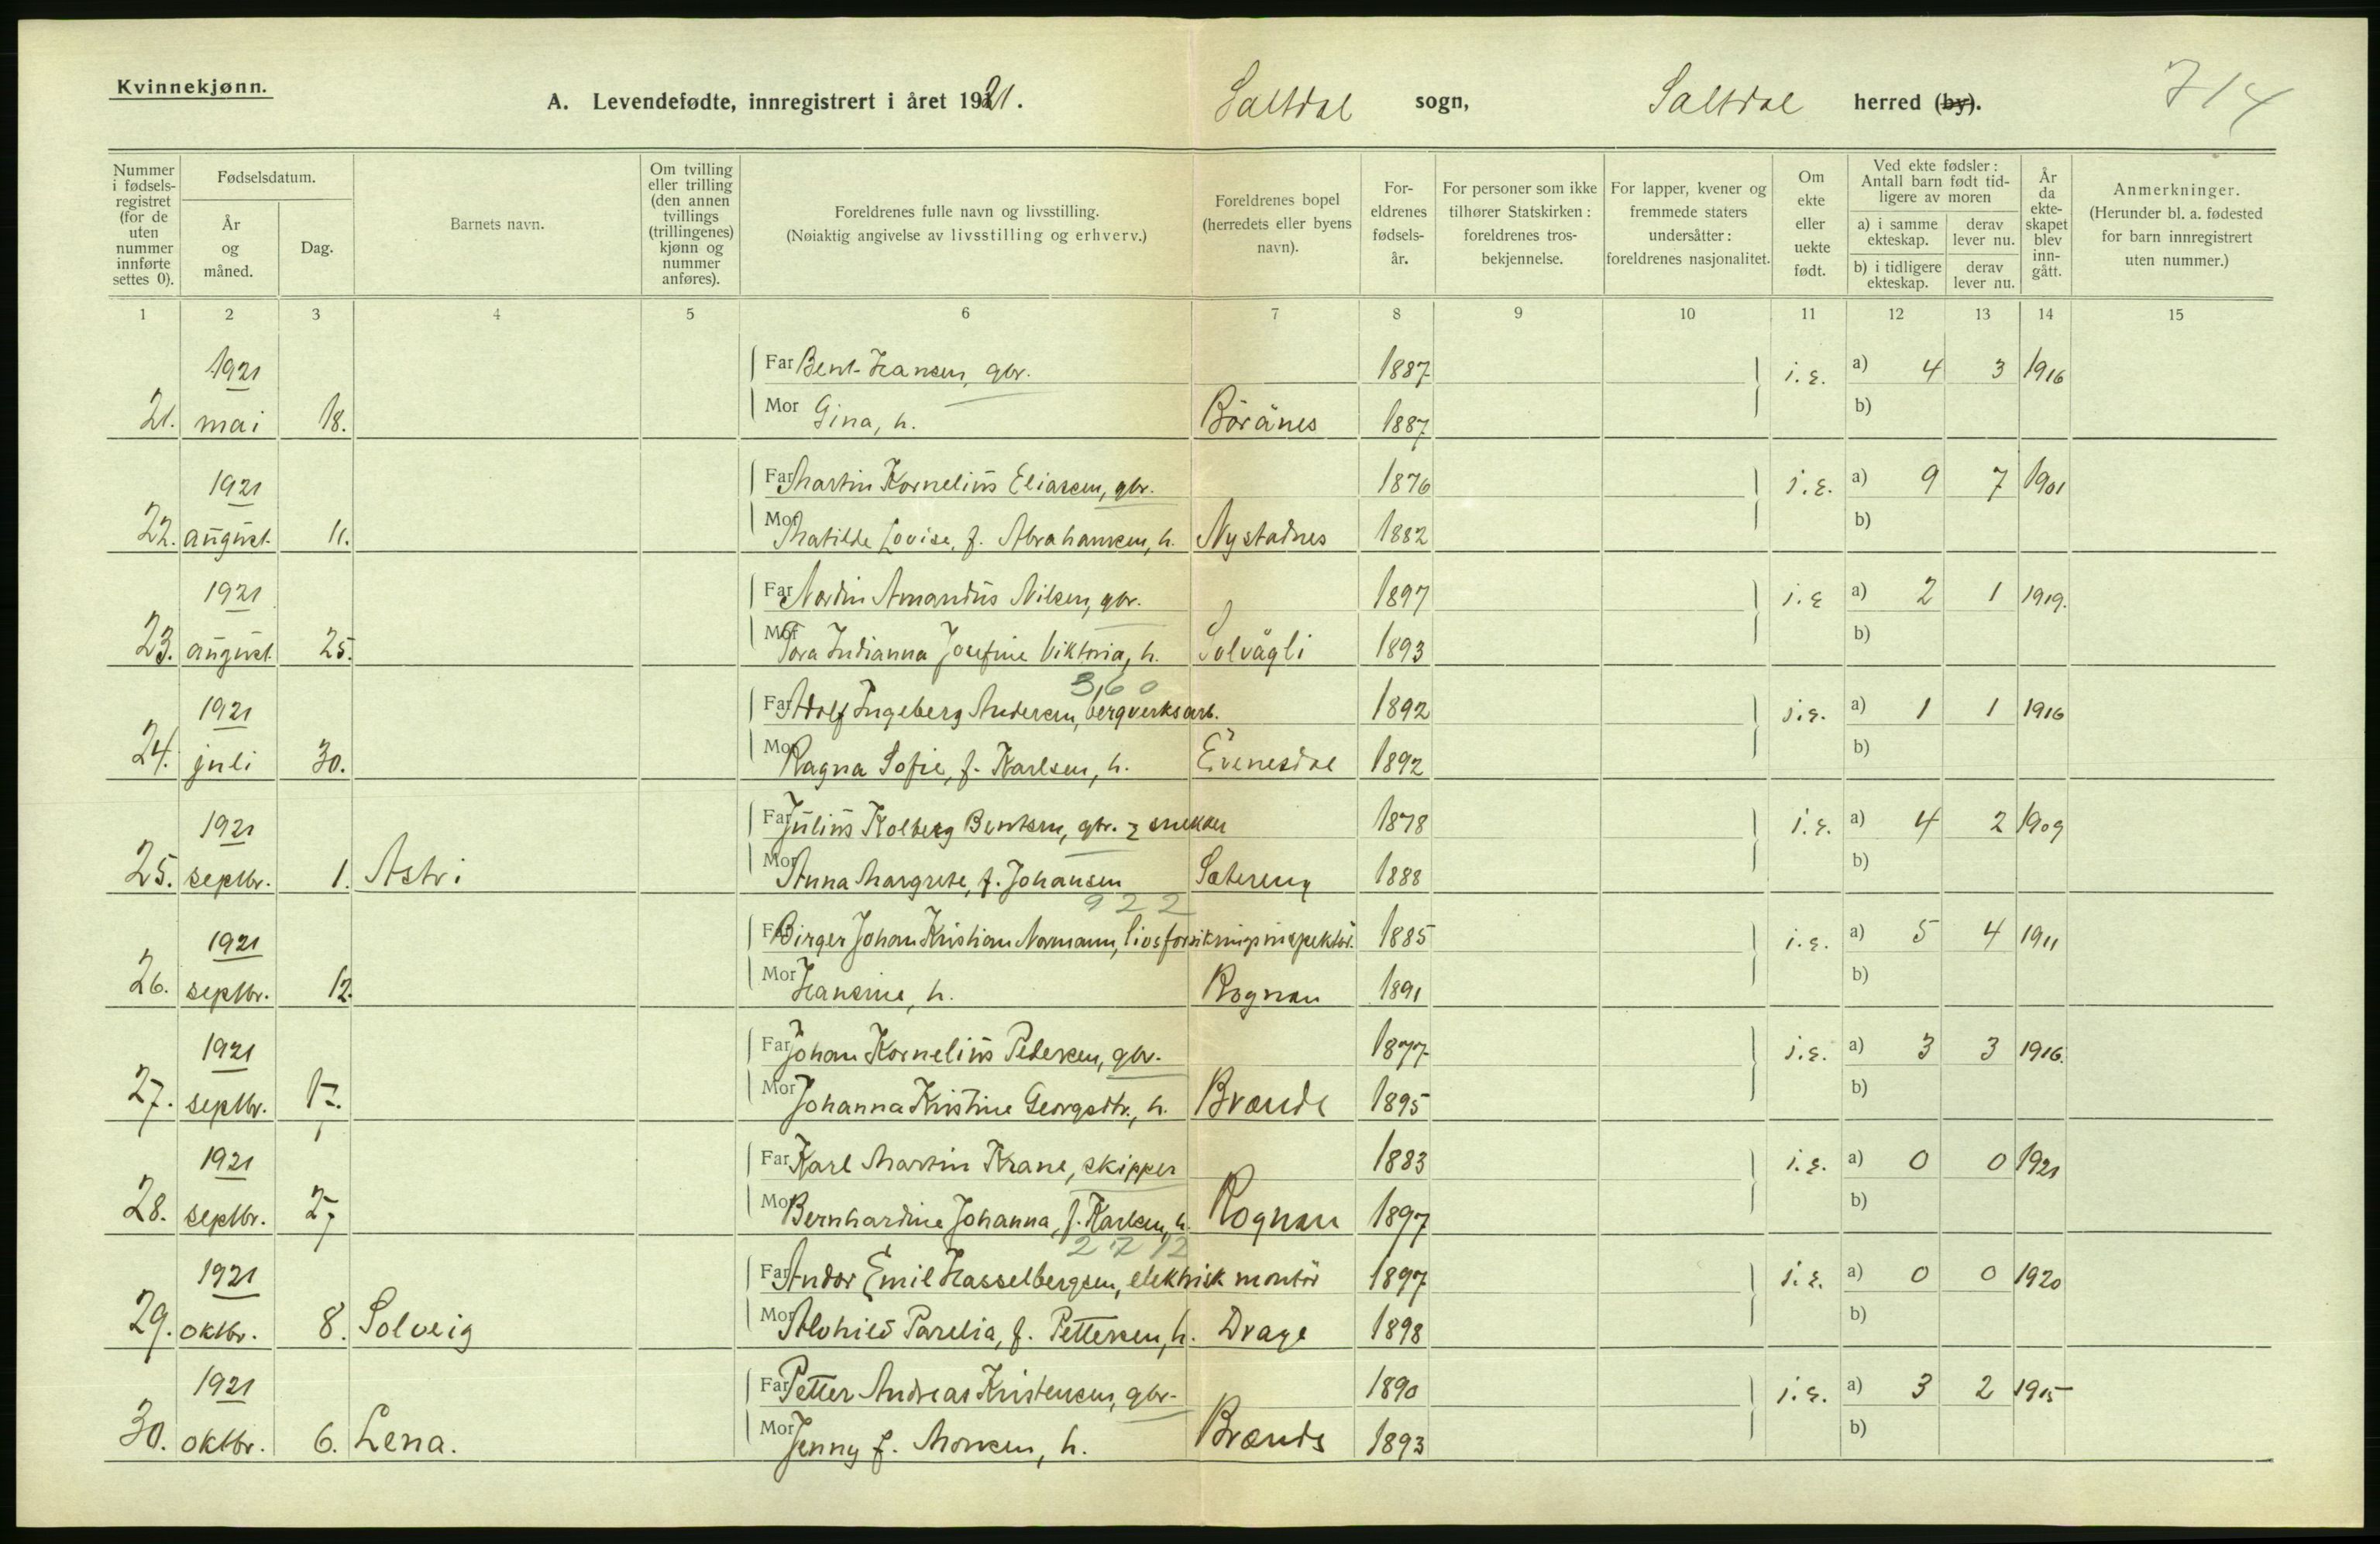 Kvinnekjønn.
A. Levendefødte, innregistrert i året 1921. Saltdal sogn, Saltdal herred (by). 714
Nummer i fødselsregistret (for de uten nummer innførte settes 0).
Fødselsdatum.
År og måned.
Dag.
Barnets navn.
Om tvilling eller trilling (den annen tvillings (trillingenes) kjønn og nummer anføres).
Foreldrenes fulle navn og livsstilling.
(Nøiaktig angivelse av livsstilling og erhverv.)
Foreldrenes bopel (herredets eller byens navn).
Foreldrenes fødselsår.
For personer som ikke tilhører Statskirken: foreldrenes trosbekjennelse.
For lapper, kvener og fremmede staters undersåtter: foreldrenes nasjonalitet.
Om ekte eller uekte født.
Ved ekte fødsler: Antall barn født tidligere av moren
a) i samme ekteskap.
derav lever nu.
b) i tidligere ekteskap.
derav lever nu.
År da ekteskapet blev inngått.
Anmerkninger.
(Herunder bl. a. fødested for barn innregistrert uten nummer.)
1 2 3 4 5 6 7 8 9 10 11 12 13 14 15
1921 Far Bent Hansen, gbr. 1887 i.e. a) 4 3 1916
21. mai 18. Mor Gina, h. Böränes 1887 b)
1921 Far Martin Kornelius Eliassen, gbr. 1876 i.e. a) 9 7 1901
22. august 11. Mor Matilde Lovise, f. Abrahamsen, h. Nystadnes 1882 b)
1921 Far Nordin Amandus Nilsen, gbr. 1897 i.e a) 2 1 1919.
23. august 25. Mor Tora Indianna Josefine Viktoria, h. Solvågli 1893 b)
360
1921 Far Adolf Ingeberg Andersen, bergverksarb. 1892 i.e. a) 1 1 1916
24. juli 30. Mor Ragna Sofie, f. Karlsen, h. Evenesdal 1892 b)
1921 Far Julius Kolberg Bentsen, gbr. & snekker 1878 i.e. a) 4 2 1909
25. septbr. 1. Astri Mor Anna Margrete, f. Johansen 1888 b)
922
1921 Far Birger Johan Kristian Normann, livsforsikringsinspektör. 1885 i.e. a) 5 4 1911
26. septbr. 12. Mor Hansine, h. Rognan 1891 b)
1921 Far Johan Kornelius Pedersen, gbr. 1877 i.e. a) 3 3 1916.
27. septbr. 17. Mor Johanna Kristine Georgsdtr., h. Brænde 1895 b)
1921 Far Karl Martin Krane, skipper 1883 i.e. a) 0 0 1921
28. septbr. 27 Mor Bernhardine Johanna, f. Karlsen, h. Rognan 1897 b)
2712
1921 Far Andor Emil Hasselbergsen, elektrisk montör 1897 i.e. a) 0 0 1920
29. oktbr. 8. Solveig Mor Alvhild Parelia, f. Pettersen, h. Drage 1898 b)
1921 Far Petter Andreas Kristensen, gbr. 1890 i.e. a) 3 2 1915
30. oktbr. 6. Lena. Mor Jenny f. Monsen, h. Brænde 1893 b)